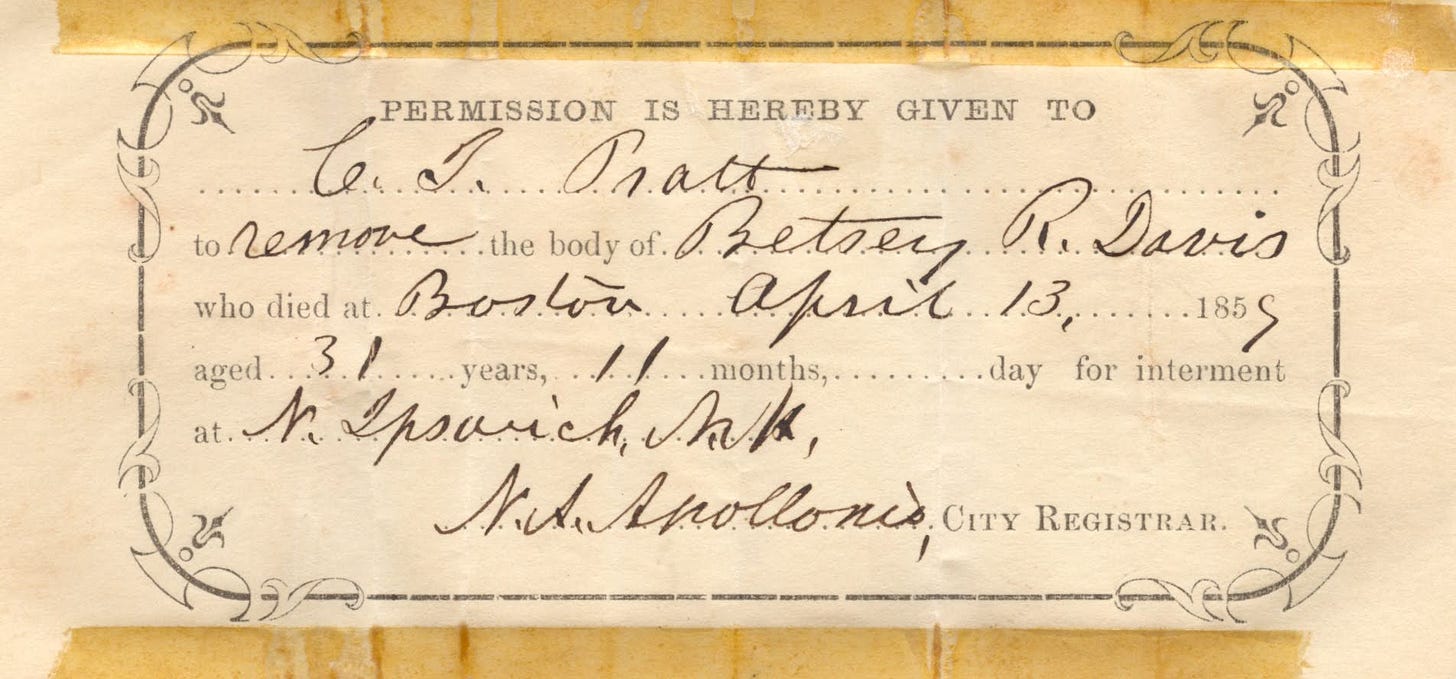 PERMISSION IS HEREBY GIVEN TO
C. T. Pratt
to remove the body of Betsey R. Davis
who died at Boston April 13, 1859
aged 31 years, 11 months, day for interment
at N. Ipswich, N.H,
N. A. Apollonio, CITY REGISTRAR.